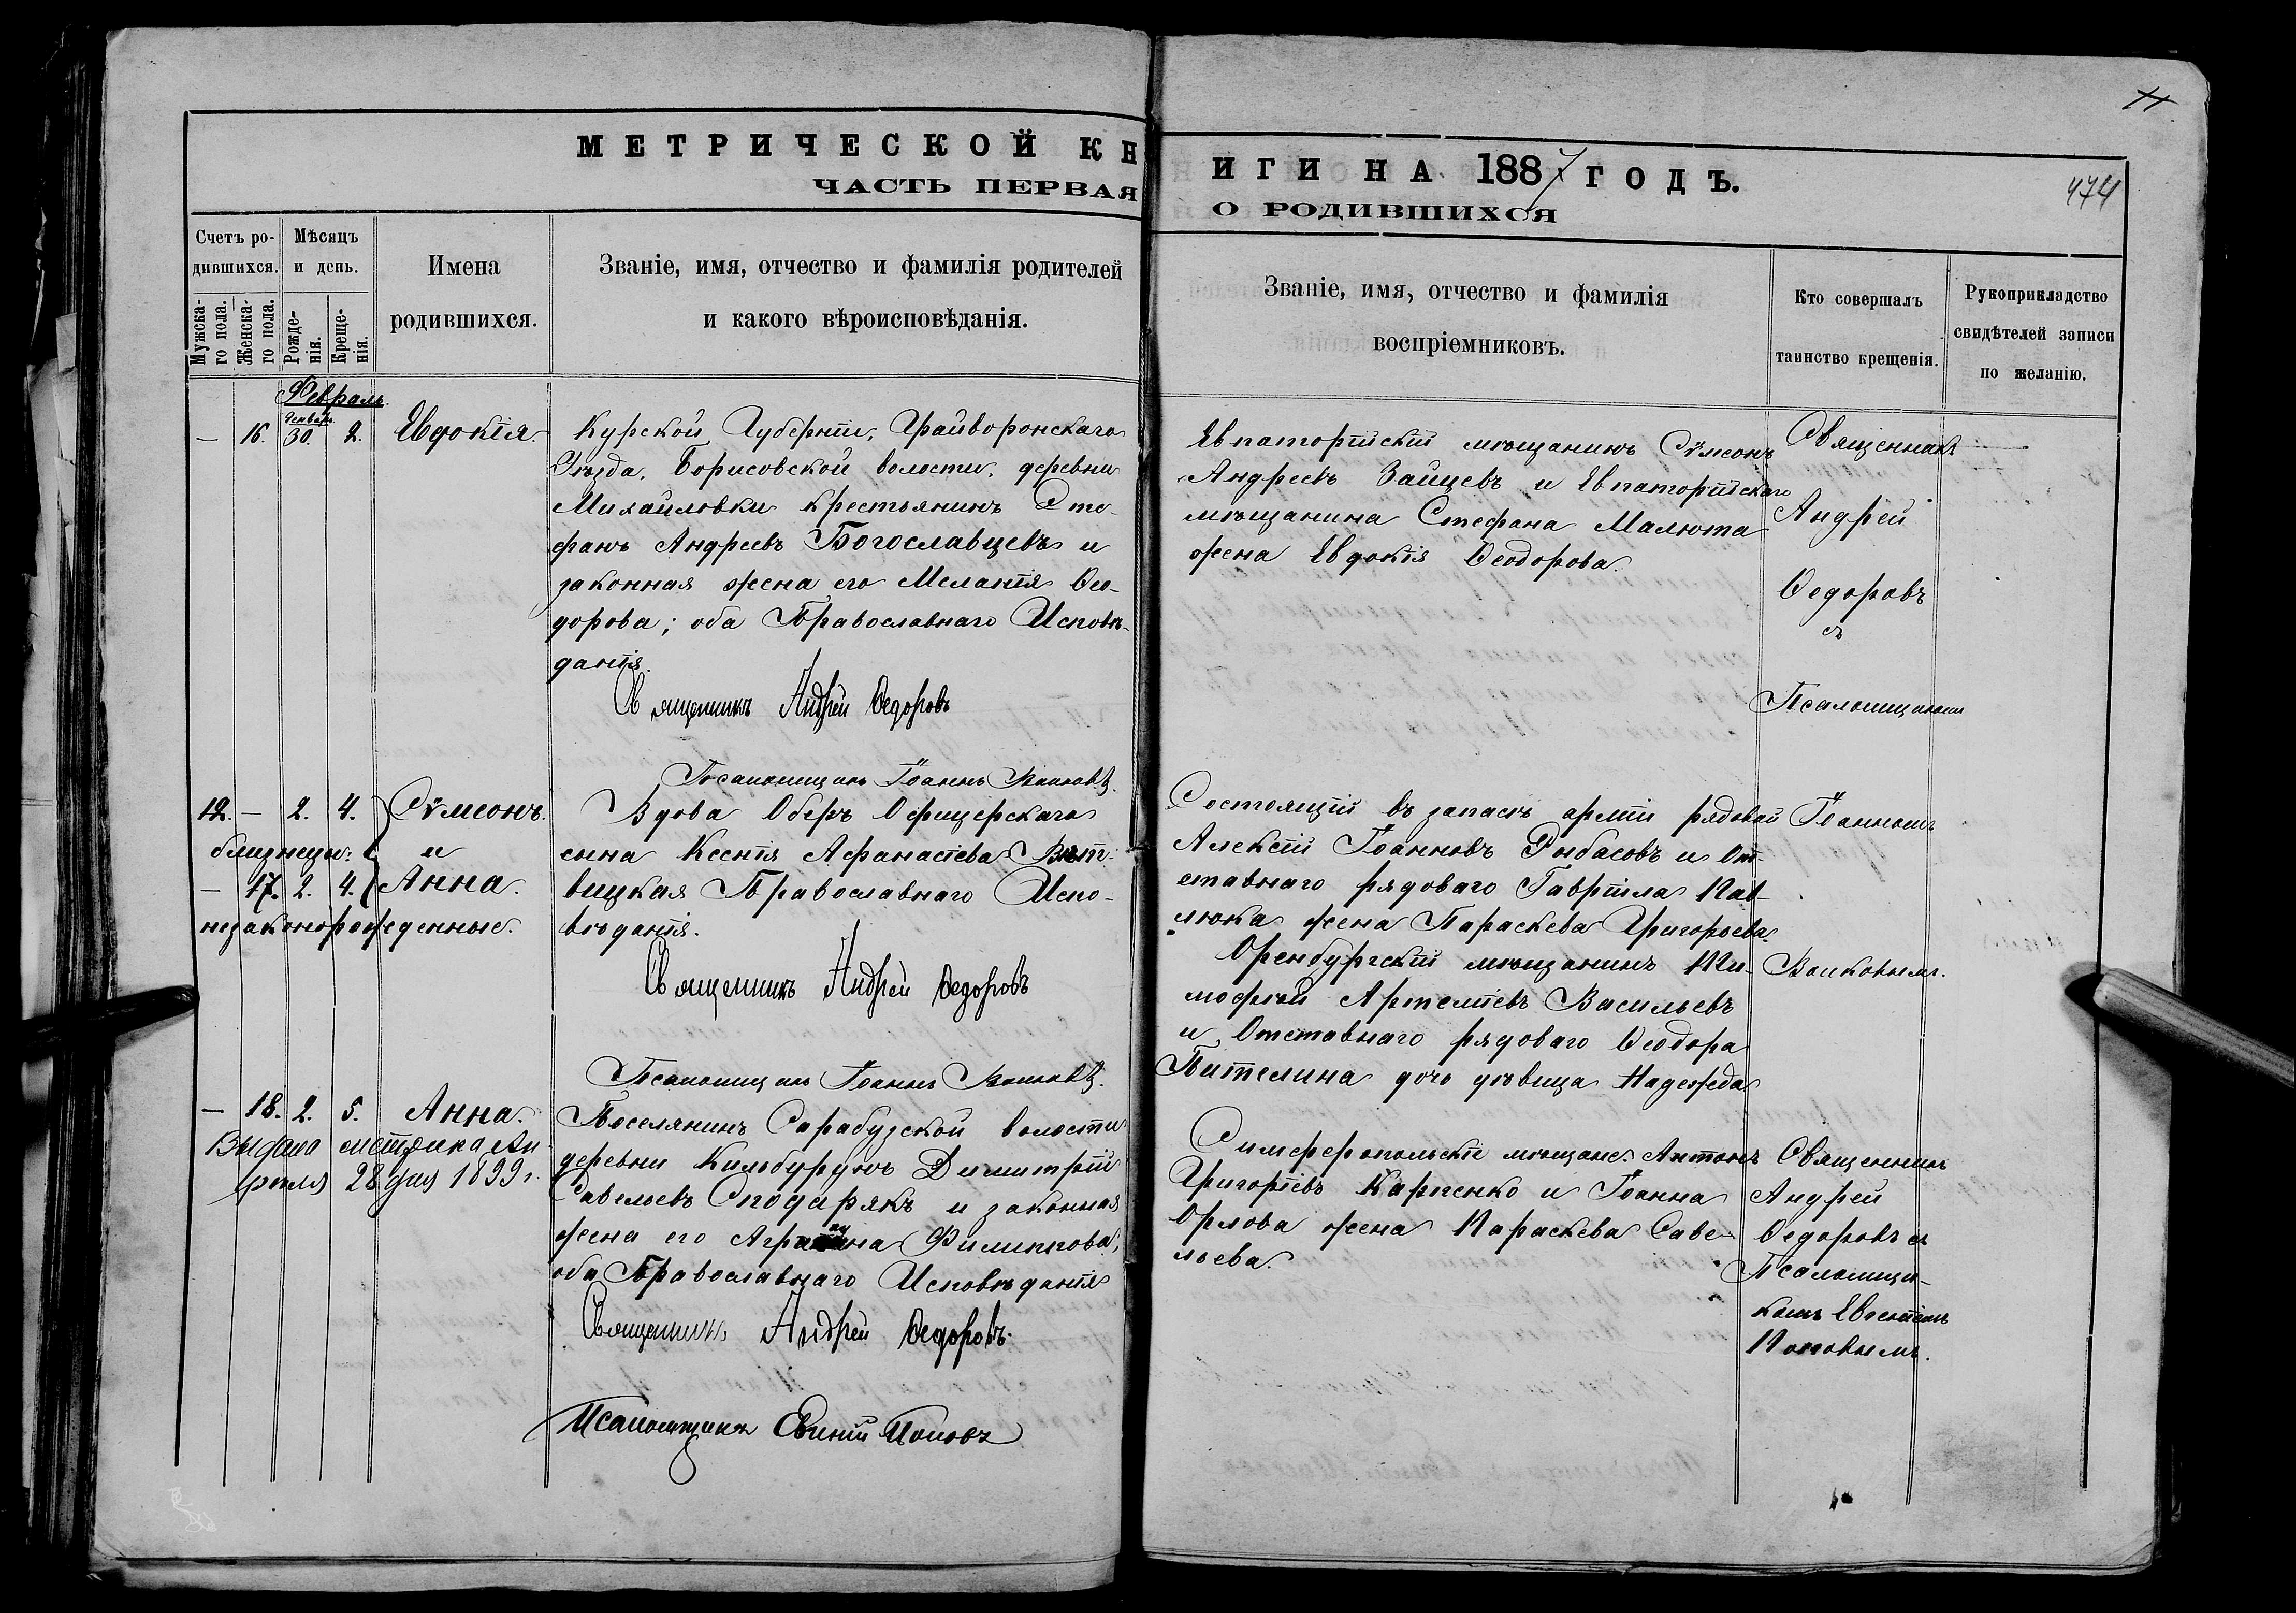 МЕТРИЧЕСКОЙ КНИГИ НА 1887 ГОДЪ.
ЧАСТЬ ПЕРВАЯ О РОДИВШИХСЯ
474
Счетъ ро-
дившихся.
Мужска-
го пола.
Женска-
го пола.
Мѣсяцъ
и день.
Рожде-
нія.
Креще-
нія.
Имена
родившихся.
Званіе, имя, отчество и фамилія родителей
и какого вѣроисповѣданія.
Званіе, имя, отчество и фамилія
воспріемниковъ.
Кто совершалъ
таинство крещенія.
Рукоприкладство
свидѣтелей записи
по желанію.
Февраль.
Генварь
— 16. 30. 2. Евдокія.
Курской Губерніи, Грайворонскаго
Уѣзда, Борисовской волости, деревни
Михайловки крестьянинъ Сте-
фанъ Андреевъ Богославцевъ и
законная жена его Меланія Ѳео-
дорова; оба Православнаго Исповѣ-
данія.
Священникъ Андрей Ѳедоровъ
Псаломщикъ Іоаннъ
Евпаторійскій мѣщанинъ Сѵмеонъ
Андреевъ Зайцевъ и Евпаторійскаго
мѣщанина Стефана Малюта
жена Евдокія Ѳеодорова.
Священникъ
Андрей
Ѳедоровъ
съ
Псаломщикомъ
12. — 2. 4. Сѵмеонъ.
близнецы: и
— 17. 2. 4. Анна.
незаконорожденные.
Вдова Оберъ Офицерскаго
сына Ксенія Афанасіева
вицкая Православнаго Испо-
вѣданія.
Священникъ Андрей Ѳедоровъ
Псаломщикъ Іоаннъ
Состоящій въ запасѣ арміи рядовой
Алексій Іоанновъ Рыбасовъ и От-
ставнаго рядоваго Гавріила Пав-
люка жена Параскева Григорьева.
Оренбургскій мѣщанинъ Ти-
мофей Артеміевъ Васильевъ
и Отставнаго рядоваго Ѳеодора
Пителина дочь дѣвица Надежда
Іоанномъ
— 18. 2. 5. Анна.
Выдана метрика Ап-
рѣля 28 дня 1899 г.
Поселянинъ Сарабузской волости
деревни Кильбурунъ Димитрій
Савельевъ Сподарякъ и законная
жена его Агрипина Филиппова,
оба Православнаго Исповѣданія
Священникъ Андрей Ѳедоровъ.
Псаломщикъ Евгеній Поповъ
Симферопольскіе мѣщане: Антонъ
Григоріевъ Карпенко и Іоанна
Орлова жена Параскева Саве-
льева.
Священникъ
Андрей
Ѳедоровъ съ
Псаломщи-
комъ Евгеніемъ
Поповымъ.